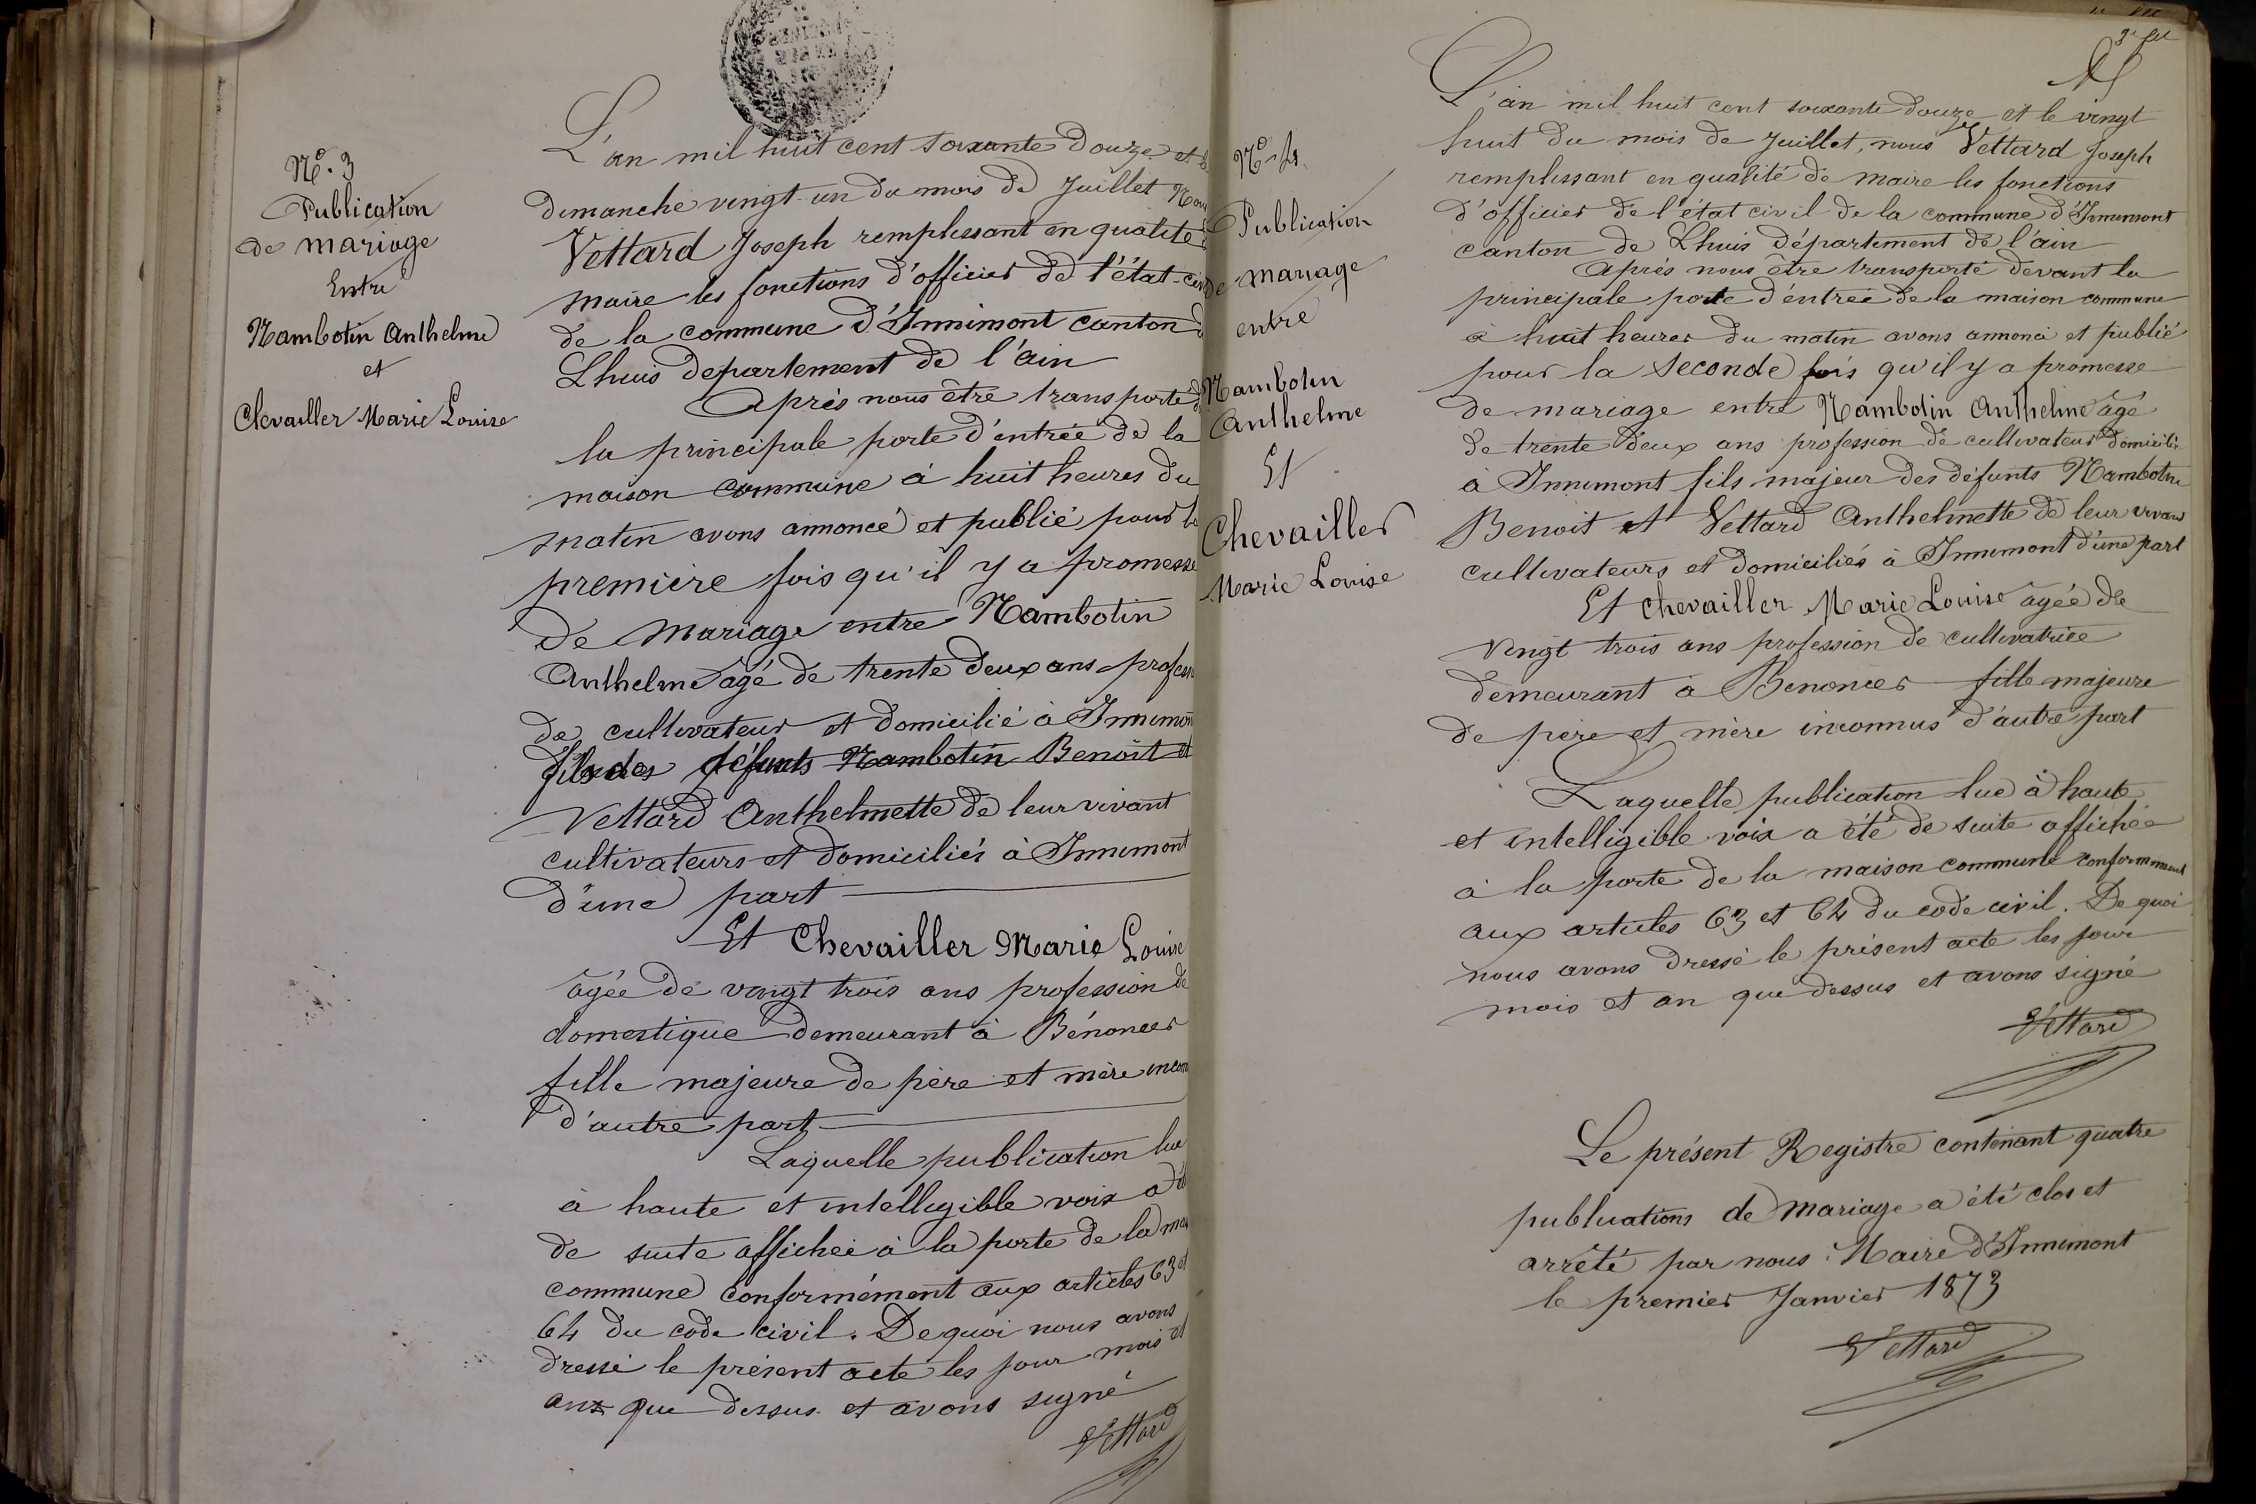 Nº. 3
Publication
de mariage
Entre
Nambotin Anthelme
et
Chevailler Marie Louise
L'an mil huit cent soixante Douze et le
dimanche vingt-un du mois de Juillet Nous
Vettard Joseph remplissant en qualité de
maire les fonctions d'officier de l'état-civil
de la commune d'Innimont canton de
Lhuis departement de l'ain
Après nous être transporté
la principale porte d'entrée de la
maison commune à huit heures du
matin avons annoncé et publié pour la
première fois qu'il y a promesse
de mariage entre Nambotin
Anthelme âgé de trente deux ans profess
de cultivateur et domicilié à Innimont
fils des défunts Nambotin Benoît et
Vettard Anthelmette de leur vivant
cultivateurs et domiciliés à Innimont
d'une part
Et Chevailler Marie Louise
âgée de vingt trois ans profession de
domestique demeurant à Bénonces
fille majeure de père et mère incon
d'autre part
Laquelle publication lue
à haute et intelligible voix a été
de suite affichée à la porte de la mai
commune conformément aux articles 63 et
64 du code civil. De quoi nous avons
dressé le présent acte les jour mois et
ans que dessus et avons signé
Vettard
3e
Nº 4.
Publication
de mariage
entre
Nambotin
Anthelme
Et
Chevailler
Marie Louise
L'an mil huit cent soixante douze et le vingt
huit du mois de Juillet, nous Vettard Joseph
remplissant en qualité de maire les fonctions
d'officier de l'état civil de la commune d'Innimont
canton de Lhuis département de l'ain
Après nous être transporté devant la
principale porte d'entrée de la maison commune
à huit heures du matin avons annoncé et publié
pour la seconde fois qu'il y a promesse
de mariage entre Nambotin Anthelme âgé
de trente deux ans profession de cultivateur domicilié
à Innimont fils majeur des défunts Nambotin
Benoit et Vettard Anthelmette de leur vivant
cultivateurs et domiciliés à Innimont d'une part
Et Chevailler Marie Louise âgée de
vingt trois ans profession de cultivatrice
demeurant à Benonces fille majeure
de père et mère inconnus d'autre part
Laquelle publication lue à haute
et intelligible voix a été de suite affichée
à la porte de la maison commune conformement
aux articles 63 et 64 du code civil. De quoi
nous avons dressé le présent acte les jour
mois et an que dessus et avons signé
Vettard
Le présent Registre contenant quatre
publications de mariage a été clos et
arrêté par nous Maire d'Innimont
le premier Janvier 1873
Vettard